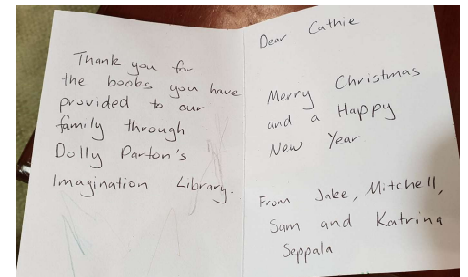 Thank you for
the books you have
provided to our
family through
Dolly Parton's
Imagination Library.
Dear Cathie
Merry Christmas
and a Happy
New Year
From Jake, Mitchell,
Sam and Katrina
Seppala